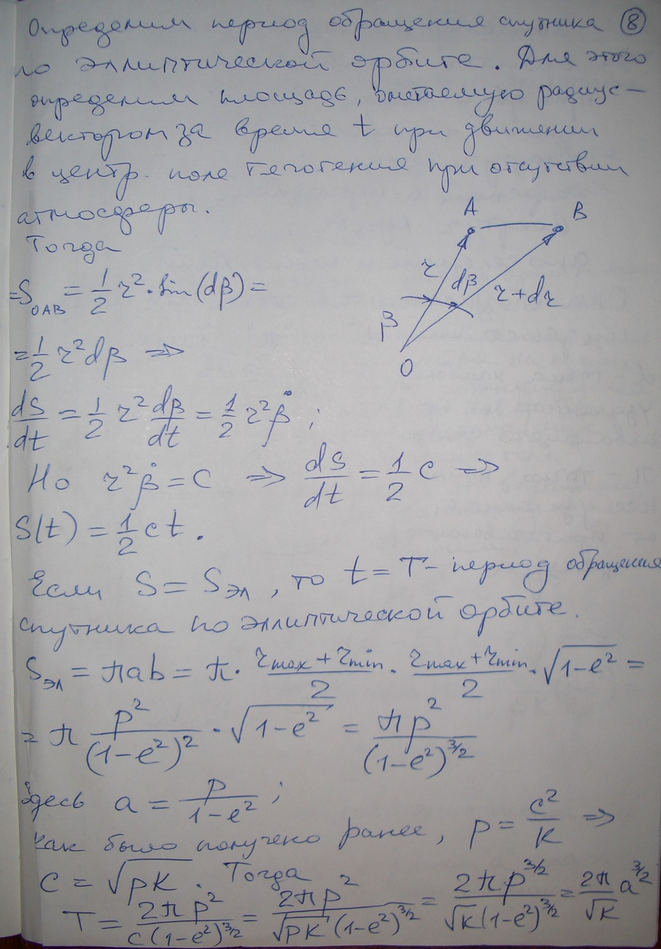 Определим период обращения спутника ⑧
по эллиптической орбите. Для этого
определим площадь, ометаемую радиус-
вектором за время t при движении
в центр. поле тяготения при отсутствии
атмосферы.
Тогда
A B
r dβ r+dr
β
O
=S_OAB = 1/2 r²·sin(dβ) =
= 1/2 r²dβ ⇒
dS/dt = 1/2 r² dβ/dt = 1/2 r²β̇ ;
Но r²β̇ = C ⇒ dS/dt = 1/2 c ⇒
S(t) = 1/2 ct.
Если S = S_эл, то t = T - период обращения
спутника по эллиптической орбите.
S_эл = πab = π · (r_max + r_min)/2 · (r_max + r_min)/2 · √(1-e²) =
= π p²/(1-e²)² · √(1-e²) = πp²/(1-e²)^(3/2)
Здесь a = p/(1-e²) ;
как было получено ранее, p = c²/K ⇒
C = √(pK). Тогда
T = 2πp²/(c(1-e²)^(3/2)) = 2πp²/(√(pK)(1-e²)^(3/2)) = 2πp^(3/2)/(√K(1-e²)^(3/2)) = 2π/√K a^(3/2)